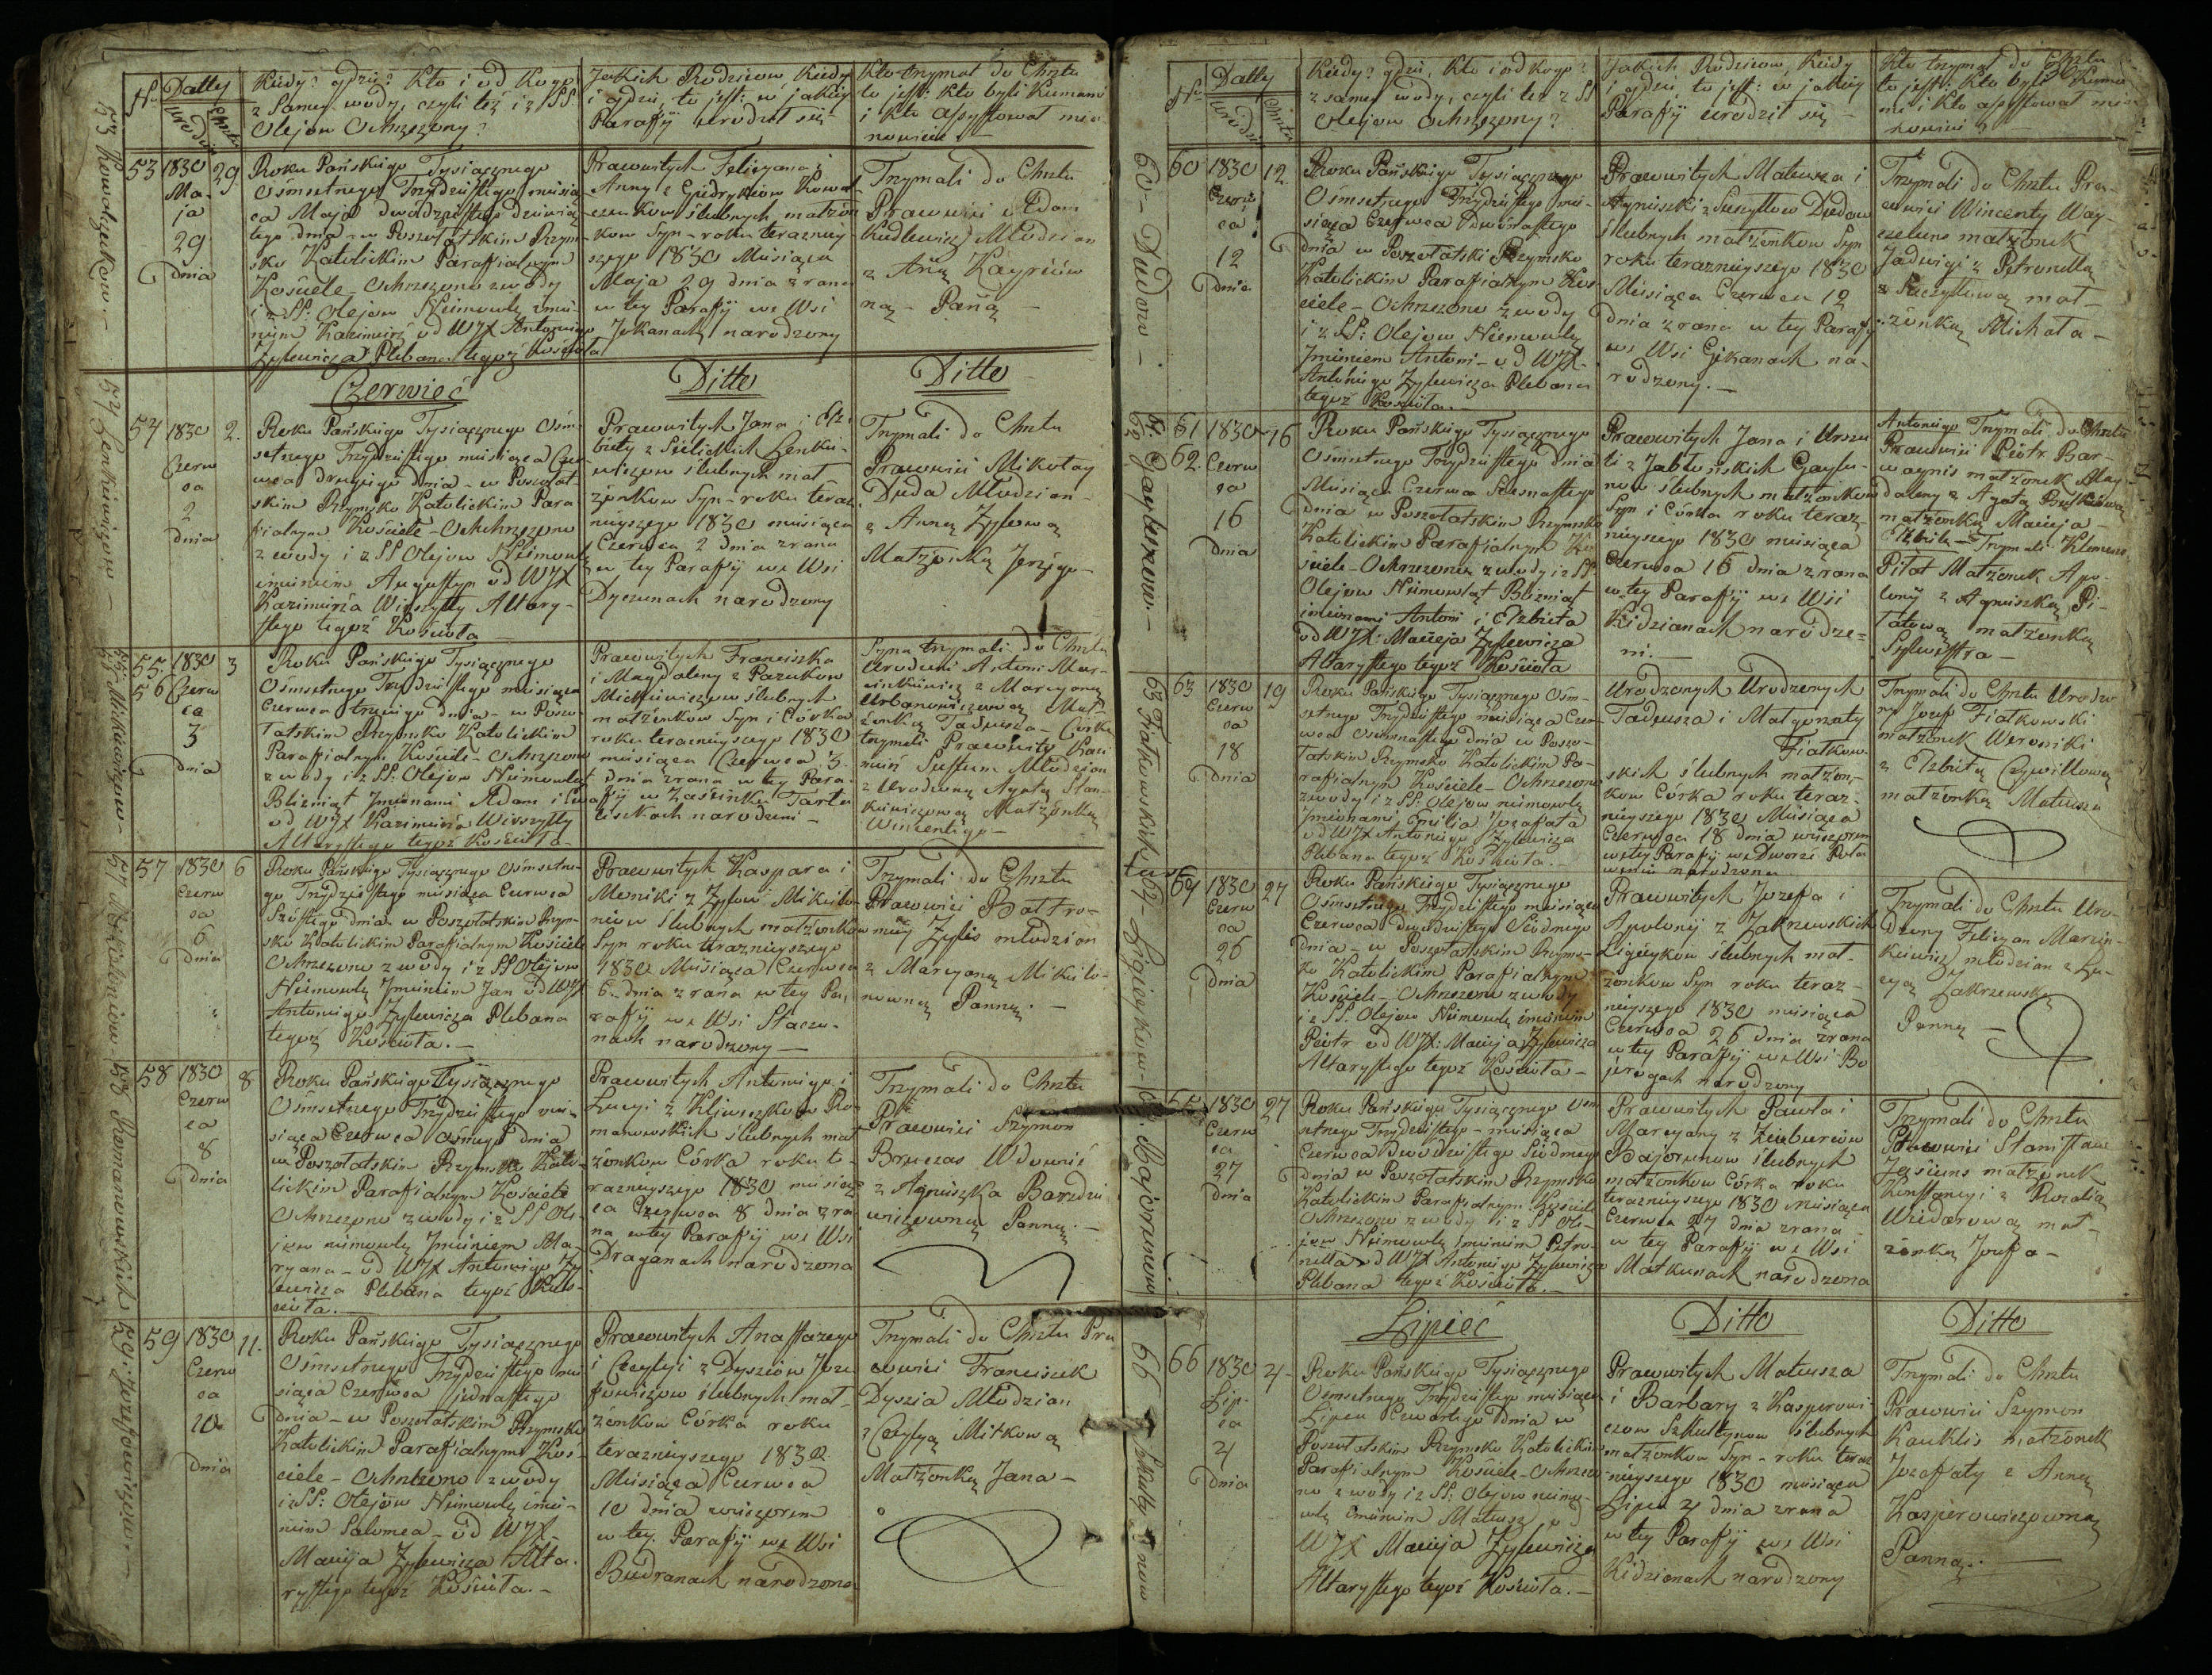 No
Datty
Urodzin
Chrztu
Kiedy? gdzie? Kto i od Kogo?
z Samey wody, czyli też i z SS
Olejow Ochrzczony?
Jakich Rodzicow Kiedy
i gdzie, to jest: w jakiey
Parafij urodził się
Kto trzymał do Chrztu
to jest: Kto byli Kumami
i Kto assystował mia
nowicie
53 Kowalczukow.
53
1830
Maja
29
dnia
29
Roku Pańskiego Tysiącznego
Ośmsetnego Trzydziestego miesią
ca Maja dwódziestego dziewią
tego dnia w Poszołatskim Rzym
sko Katolickim Parafialnym
Kościele Ochrzczono z wody
i z SS: Olejow Niemowlę imie
niem Kazimierz od WJX Antoniego
Zylewicza Plebana tegoż Kościoła
Prawowitych Felicyana i
Anny z Giedryków Kowal
czukow ślubnych małżon
kow Syn roku terazniey
szego 1830 Miesiąca
Maja 29 dnia z rana
w tey Parafij we Wsi
Jakanach narodzony
Trzymali do Chrztu
Prawowici Adam
Kudlewicz Młodzian
z Anną
ną Panną
Czerwiec
Ditto
Ditto
54 Lenkiewiczow
54
1830
Czerw
ca
2
dnia
2.
Roku Pańskiego Tysiącznego Ośm
setnego Trzydziestego miesiąca Czer
wca drugiego dnia w Poszołat
skim Rzymsko Katolickim Para
fialnym Kościele Ochrzczono
z wody i z SS Olejow Niemowlę
imieniem Augustyn od WJX
Kazimierza Wierszyłły Altary
stego tegoż Kościoła
Prawowitych Jana i Elż
biety z Sielickich Lenkie
wiczow ślubnych mał
żonkow Syn roku teraz
nieyszego 1830 miesiąca
Czerwca 2 dnia z rana
w tey Parafij we Wsi
Dyczunach narodzony
Trzymali do Chrztu
Prawowici Mikołay
Duda Młodzian
z Anną Zyglową
Małżonką Jerzego
55.
56
Mickiewiczow
1830
Czerw
ca
3
dnia
3
Roku Pańskiego Tysiącznego
Ośmsetnego Trzydziestego miesiąca
Czerwca trzeciego dnia w Poszo
łatskim Rzymsko Katolickim
Parafialnym Kościele Ochrzczono
z wody i z SS: Olejow Niemowląt
Bliźniąt Imionami Adam i Ewa
od WJX Kazimierza Wierszyłły
Altarystego tegoż Kościoła
Prawowitych Franciszka
i Magdaleny z Pazukow
Mickiewiczow ślubnych
małżonkow Syn i Córka
roku teraznieyszego 1830
miesiąca Czerwca 3.
dnia z rana w tey Para
fij w Zaścinku Tarte
liszkach narodzeni
Syna trzymali do Chrztu
Urodzeni Antoni Mar
cinkiewicz z Maryanną
Urbanowiczową Mał
żonką Tadeusza Córkę
trzymali Prawowity Kazi
mierz Młodzian
z Urodzoną Agatą Stan
kiewiczową Małżonką
Wincentego
57 Mikulonisow
57
1830
Czerw
ca
6
dnia
6
Roku Pańskiego Tysiącznego Ośmsetne
go Trzydziestego miesiąca Czerwca
Szóstego dnia w Poszołatskim Rzym
sko Katolickim Parafialnym Kościele
Ochrzczono z wody i z SS Olejow
Niemowlę Imieniem Jan od WJX
Antoniego Zylewicza Plebana
tegoż Kościoła.
Prawowitych Kaspara i
Moniki z Zylow Mikulo
niow ślubnych małżonkow
Syn roku teraznieyszego
1830 Miesiąca Czerwca
6. dnia z rana w tey Pa
rafij we Wsi Staczu
nach narodzony
Trzymali do Chrztu
Prawowici Bałtro
miey Zylis młodzian
z Maryanną Mikulo
nowną Panną.
58 Romanowskich
58
1830
Czerw
ca
8
dnia
8
Roku Pańskiego Tysiącznego
Ośmsetnego Trzydziestego mie
siąca Czerwca ósmego dnia
w Poszołatskim Rzymsko Kato
lickim Parafialnym Kościele
Ochrzczono z wody i z SS Ole
jow niemowlę Imieniem Ma
ryana od WJX Antoniego Zy
lewicza Plebana tegoż Koś
cioła.
Prawowitych Antoniego i
Łucyi z Klimaszkow Ro
manowskich ślubnych mał
żonkow Córka roku te
raznieyszego 1830 miesią
ca Czerwca 8 dnia z ra
na w tey Parafij we Wsi
Draganach narodzona
Trzymali do Chrztu
Prawowici Szymon
Bruczas Wdowiec
z Agnieszką Barzdzie
wiczowną Panną.
59. Jozefowiczow
59
1830
Czerw
ca
10
dnia
11.
Roku Pańskiego Tysiącznego
Ośmsetnego Trzydziestego mie
siąca Czerwca jednastego
dnia w Poszołatskim Rzymsko
Katolickim Parafialnym Koś
ciele Ochrzczono z wody
i z SS: Olejów Niemowlę imie
niem Salomea od WJX
Macieja Zylewicza Alta
rystego tegoż Kościoła.
Prawowitych Anastazego
i Cecylyi z Dyszów Joze
fowiczow ślubnych mał
żonkow Córka roku
teraznieyszego 1830
Miesiąca Czerwca
10 dnia wieczorem
w tey Parafij we Wsi
Budranach narodzona
Trzymali do Chrztu Pra
wowici Franciszek
Dyszia Młodzian
z Cecylyą Mitkową
Małżonką Jana
No
Datty
Urodzin
Chrztu
Kiedy? gdzie, Kto i od Kogo?
z samey wody, czyli też z SS
Olejow Ochrzczony?
Jakich Rodzicow, Kiedy
i gdzie, to jest: w jakiey
Parafij urodził się
Kto trzymał do Chrztu
to jest: Kto byli Kuma
mi i Kto assystował mia
nowicie
60 Dudow
60
1830
Czerw
ca
12
dnia
12
Roku Pańskiego Tysiącznego
Ośmsetnego Trzydziestego mie
siąca Czerwca Dwónastego
dnia w Poszołatski Rzymsko
Katolickim Parafialnym Koś
ciele Ochrzczono z wody
i z SS: Olejow Niemowlę
Imieniem Antoni od WJX
Antoniego Zylewicza Plebana
tegoż Kościoła.
Prawowitych Mateusza i
Agnieszki z Suszyłłow Dudow
ślubnych małżonkow Syn
roku teraznieyszego 1830
Miesiąca Czerwca 12
dnia z rana w tey Parafij
we Wsi Gikanach na
rodzony.
Trzymali do Chrztu Pra
wowici Wincenty Way
czeluns małżonek
Jadwigi z Petronellą
Puczyłową mał
żonką Michała
61. 62 Gaylunow
61
62.
1830
Czerw
ca
16
dnia
16
Roku Pańskiego Tysiącznego
Ośmsetnego Trzydziestego dnia
Miesiąca Czerwca Szesnastego
dnia w Poszołatskim Rzymsko
Katolickim Parafialnym Ko
ściele Ochrzczono z wody i z SS
Olejow Niemowląt Bliźniąt
imionami Antoni i Elżbieta
od WJX: Macieja Zylewicza
Altarystego tegoż Kościoła
Prawowitych Jana i Urszu
li z Jabłońskich Gaylu
now ślubnych małżonkow
Syn i Córka roku teraz
nieyszego 1830 miesiąca
Czerwca 16 dnia z rana
w tey Parafij we Wsi
Kidzianach narodze=
ni.
Antoniego Trzymali do Chrztu
Prawowici Piotr Bar
waynis małżonek Mag
daleny z Agatą
małżonką Macieja
Elżbietę Trzymali Klemens
Piłat Małżonek Apo
lonij z Agnieszką Pi
łatową małżonką
Sylwestra
63 Fiatkowskich
63
1830
Czerw
ca
18
dnia
19
Roku Pańskiego Tysiącznego Ośm
setnego Trzydziestego miesiąca Czer
wca Ośmnastego dnia w Poszo
łatskim Rzymsko Katolickim Pa
rafialnym Kościele Ochrzczono
z wody i z SS: Olejow niemowlę
Imionami Emilia Jozafata
od WJX Antoniego Zylewicza
Plebana tegoż Kościoła.
Urodzonych Urodzonych
Tadeusza i Małgorzaty
Fiatkow
skich ślubnych małżon
kow Córka roku teraz
nieyszego 1830 Miesiąca
Czerwca 18 dnia wieczorem
w tey Parafij we Dworze Poła
weniu narodzona
Trzymali do Chrztu Urodzo
ny Jozef Fiatkowski
małżonek Weroniki
z Elżbietą Czywillową
małżonką Mateusza
64 Ligieykow
64
1830
Czerw
ca
26
dnia
27
Roku Pańskiego Tysiącznego
Ośmsetnego Trzydziestego miesiąca
Czerwca Dwódziestego Siódmego
dnia w Poszołatskim Rzyms
ko Katolickim Parafialnym
Kościele Ochrzczono z wody
i z SS. Olejow Niemowlę imieniem
Piotr od WJX: Macieja Zylewicza
Altarystego tegoż Kościoła
Prawowitych Jozefa i
Apolonij z Zakrzewskich
Ligieykow ślubnych mał
żonkow Syn roku teraz
nieyszego 1830 miesiąca
Czerwca 26 dnia z rana
w tey Parafij we Wsi Bo
jarogach narodzony
Trzymali do Chrztu Uro
dzony Felicyan Marcin
kiewicz młodzian z Łu
cyą Zakrzewską
Panną
65. Bajorunow
65
1830
Czerw
ca
27
dnia
27
Roku Pańskiego Tysiącznego Ośm
setnego Trzydziestego miesiąca
Czerwca Dwódziestego Siódmego
dnia w Poszołatskim Rzymsko
Katolickim Parafialnym Kościele
Ochrzczono z wody i z SS Ole
jow Niemowlę imieniem Petro
nella od WJX Antoniego Zylewicza
Plebana tegoż Kościoła.
Prawowitych Pawła i
Maryany z Ziuburow
Bajorunow ślubnych
małżonkow Córka roku
teraznieyszego 1830 miesiąca
Czerwca 27 dnia z rana
w tey Parafij we Wsi
Matkunach narodzona
Trzymali do Chrztu
Prawowici Stanisław
małżonek
Konstancyi z Rozalią
Widarową mał
żonką Jozefa
Lipiec
Ditto
Ditto
66 Szkultynow
66
1830
Lip
ca
4
dnia
4
Roku Pańskiego Tysiącznego
Ośmsetnego Trzydziestego miesiąca
Lipca Czwartego Dnia w
Poszołatskim Rzymsko Katolickim
Parafialnym Kościele Ochrzczo
no z wody i z SS: Olejow niemo
wlę Imieniem Mateusz od
WJX Macieja Zylewicza
Altarystego tegoż Kościoła.
Prawowitych Mateusza
i Barbary z Kasperowi
czow Szkultynow ślubnych
małżonkow Syn roku teraz
nieyszego 1830 miesiąca
Lipca 4 dnia z rana
w tey Parafij we Wsi
Kidzionach narodzony
Trzymali do Chrztu
Prawowici Szymon
Kauklis małżonek
Jozafaty z Anną
Kasperowiczowną
Panną.